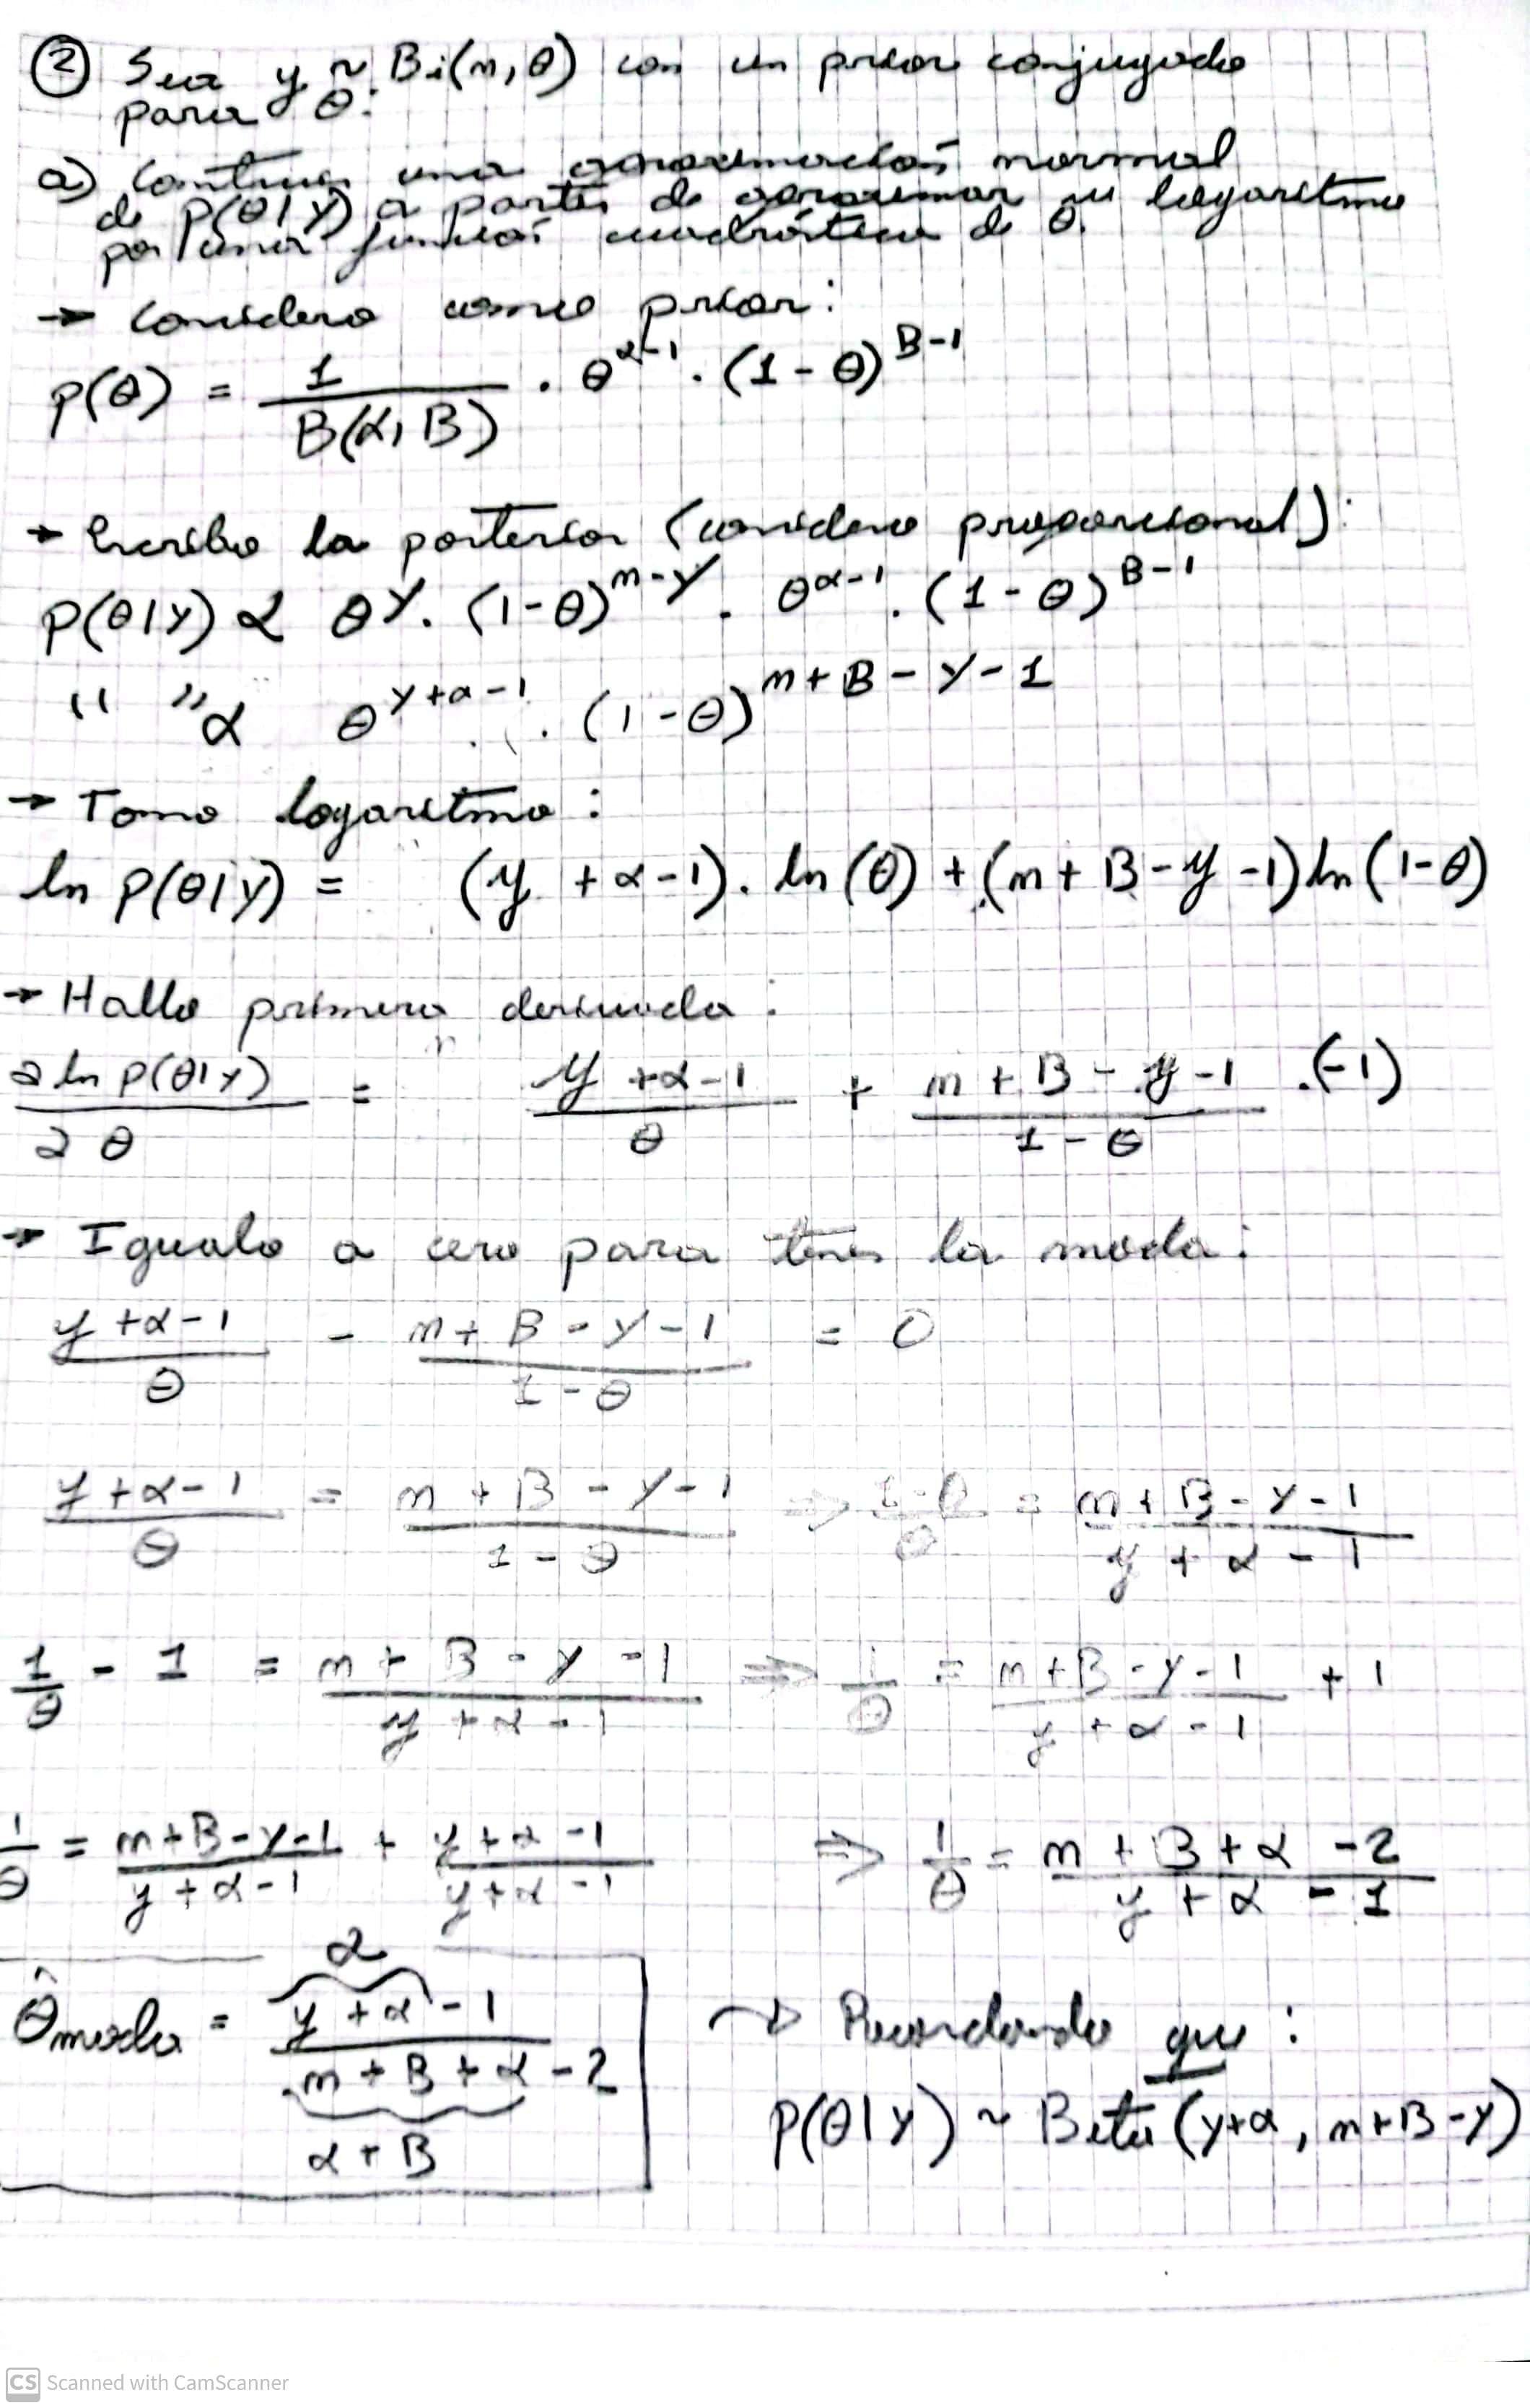 ② Sea y ~ Bi(n, θ) con un prior conjugado
para θ:
a) Construir una aproximación normal
de p(θ|Y) a partir de aproximar su logaritmo
por una función cuadrática de θ.
→ Considero como prior:
p(θ) = 1 / B(α, B) · θ^(α-1) · (1 - θ)^(B-1)
→ Escribo la posterior (considero proporcional):
p(θ|Y) α θ^Y · (1-θ)^(n-Y) · θ^(α-1) · (1-θ)^(B-1)
" " α θ^(Y+α-1) · (1-θ)^(n+B-Y-1)
→ Tomo logaritmo:
ln p(θ|Y) = (y + α-1) · ln(θ) + (n + B - y - 1) ln(1-θ)
→ Hallo primera derivada:
∂ ln p(θ|Y) / ∂θ = (y + α - 1) / θ + (n + B - y - 1) / (1 - θ) · (-1)
→ Igualo a cero para tener la moda:
(y + α - 1) / θ - (n + B - Y - 1) / (1 - θ) = 0
(y + α - 1) / θ = (n + B - Y - 1) / (1 - θ) ⇒ (1 - θ) / θ = (n + B - Y - 1) / (y + α - 1)
1/θ - 1 = (n + B - Y - 1) / (y + α - 1) ⇒ 1/θ = (n + B - Y - 1) / (y + α - 1) + 1
1/θ = (n + B - Y - 1) / (y + α - 1) + (y + α - 1) / (y + α - 1) ⇒ 1/θ = (n + B + α - 2) / (y + α - 1)
α
θ̂moda = (y + α - 1) / (n + B + α - 2) → Recordando que:
α + B
p(θ|Y) ~ Beta (Y+α, n+B-Y)
CS Scanned with CamScanner